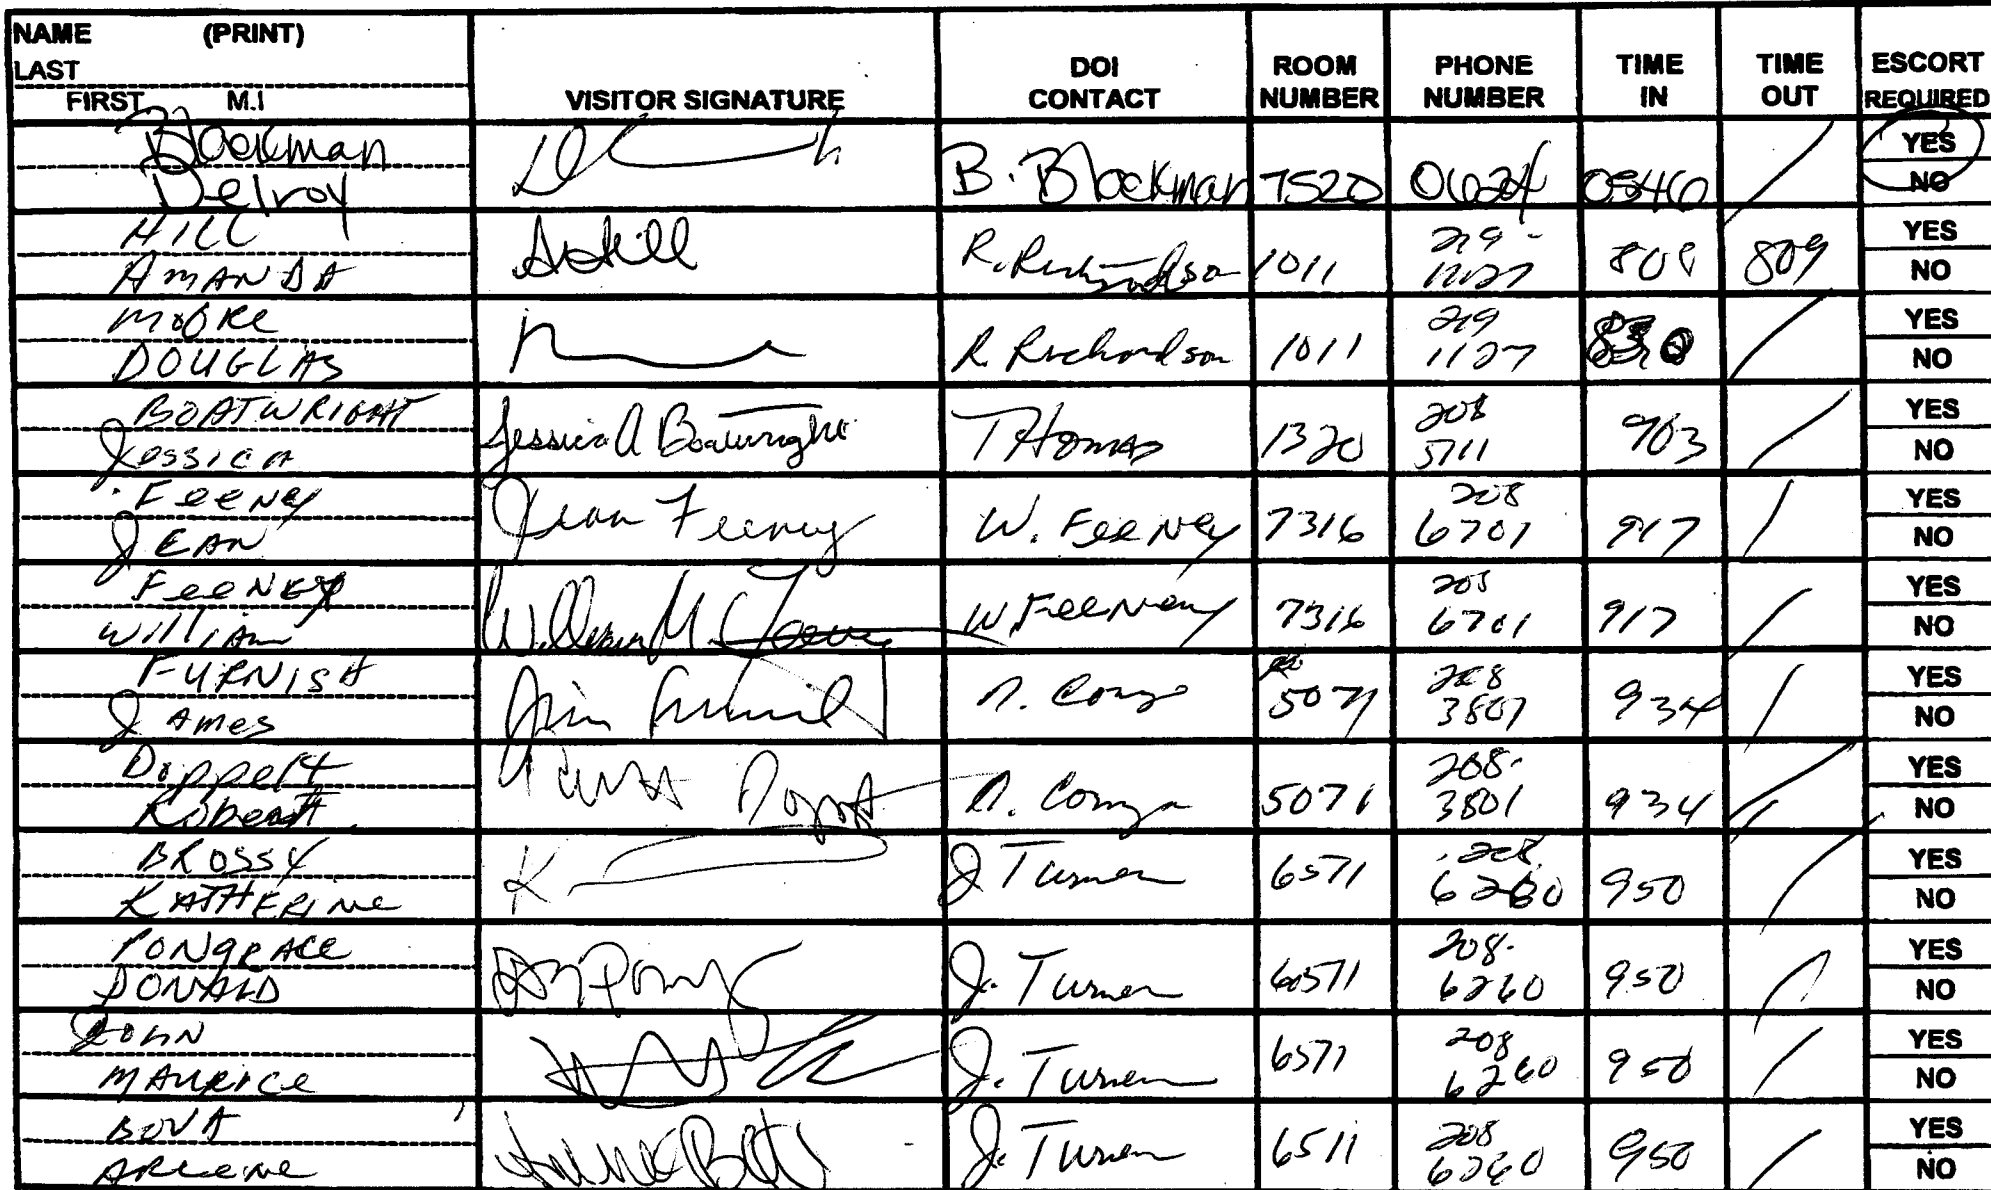 NAME (PRINT)
LAST
FIRST M.I
VISITOR SIGNATURE
DOI CONTACT
ROOM NUMBER
PHONE NUMBER
TIME IN
TIME OUT
ESCORT REQUIRED
Blackman
Delroy B. Blackman 7520 0624 0546 YES NO
HILL
AMANDA AHill R. Richardson 1011 219- 1127 808 809 YES NO
MOORE
DOUGLAS R Richardson 1011 219 1127 830 YES NO
BOATWRIGHT
Jessica Jessica A Boatwright THomas 1320 208 5711 903 YES NO
FeeNey
JEAN Jean Feeney W. FeeNey 7316 208 6701 917 YES NO
FeeNey
William William M. Feeney W. FeeNey 7316 208 6701 917 YES NO
FURNISH
James Jim Furnish 5071 208 3801 934 YES NO
Doppelt
Robert 5071 208- 3801 934 YES NO
BROSSY
KATHERINE K J Turner 6571 208 6260 950 YES NO
PONGRACE
DONALD J. Turner 6571 208- 6260 950 YES NO
JOHN
MAURICE J. Turner 6571 208 6260 950 YES NO
BOVA
ARLENE J. Turner 6511 208 6260 950 YES NO